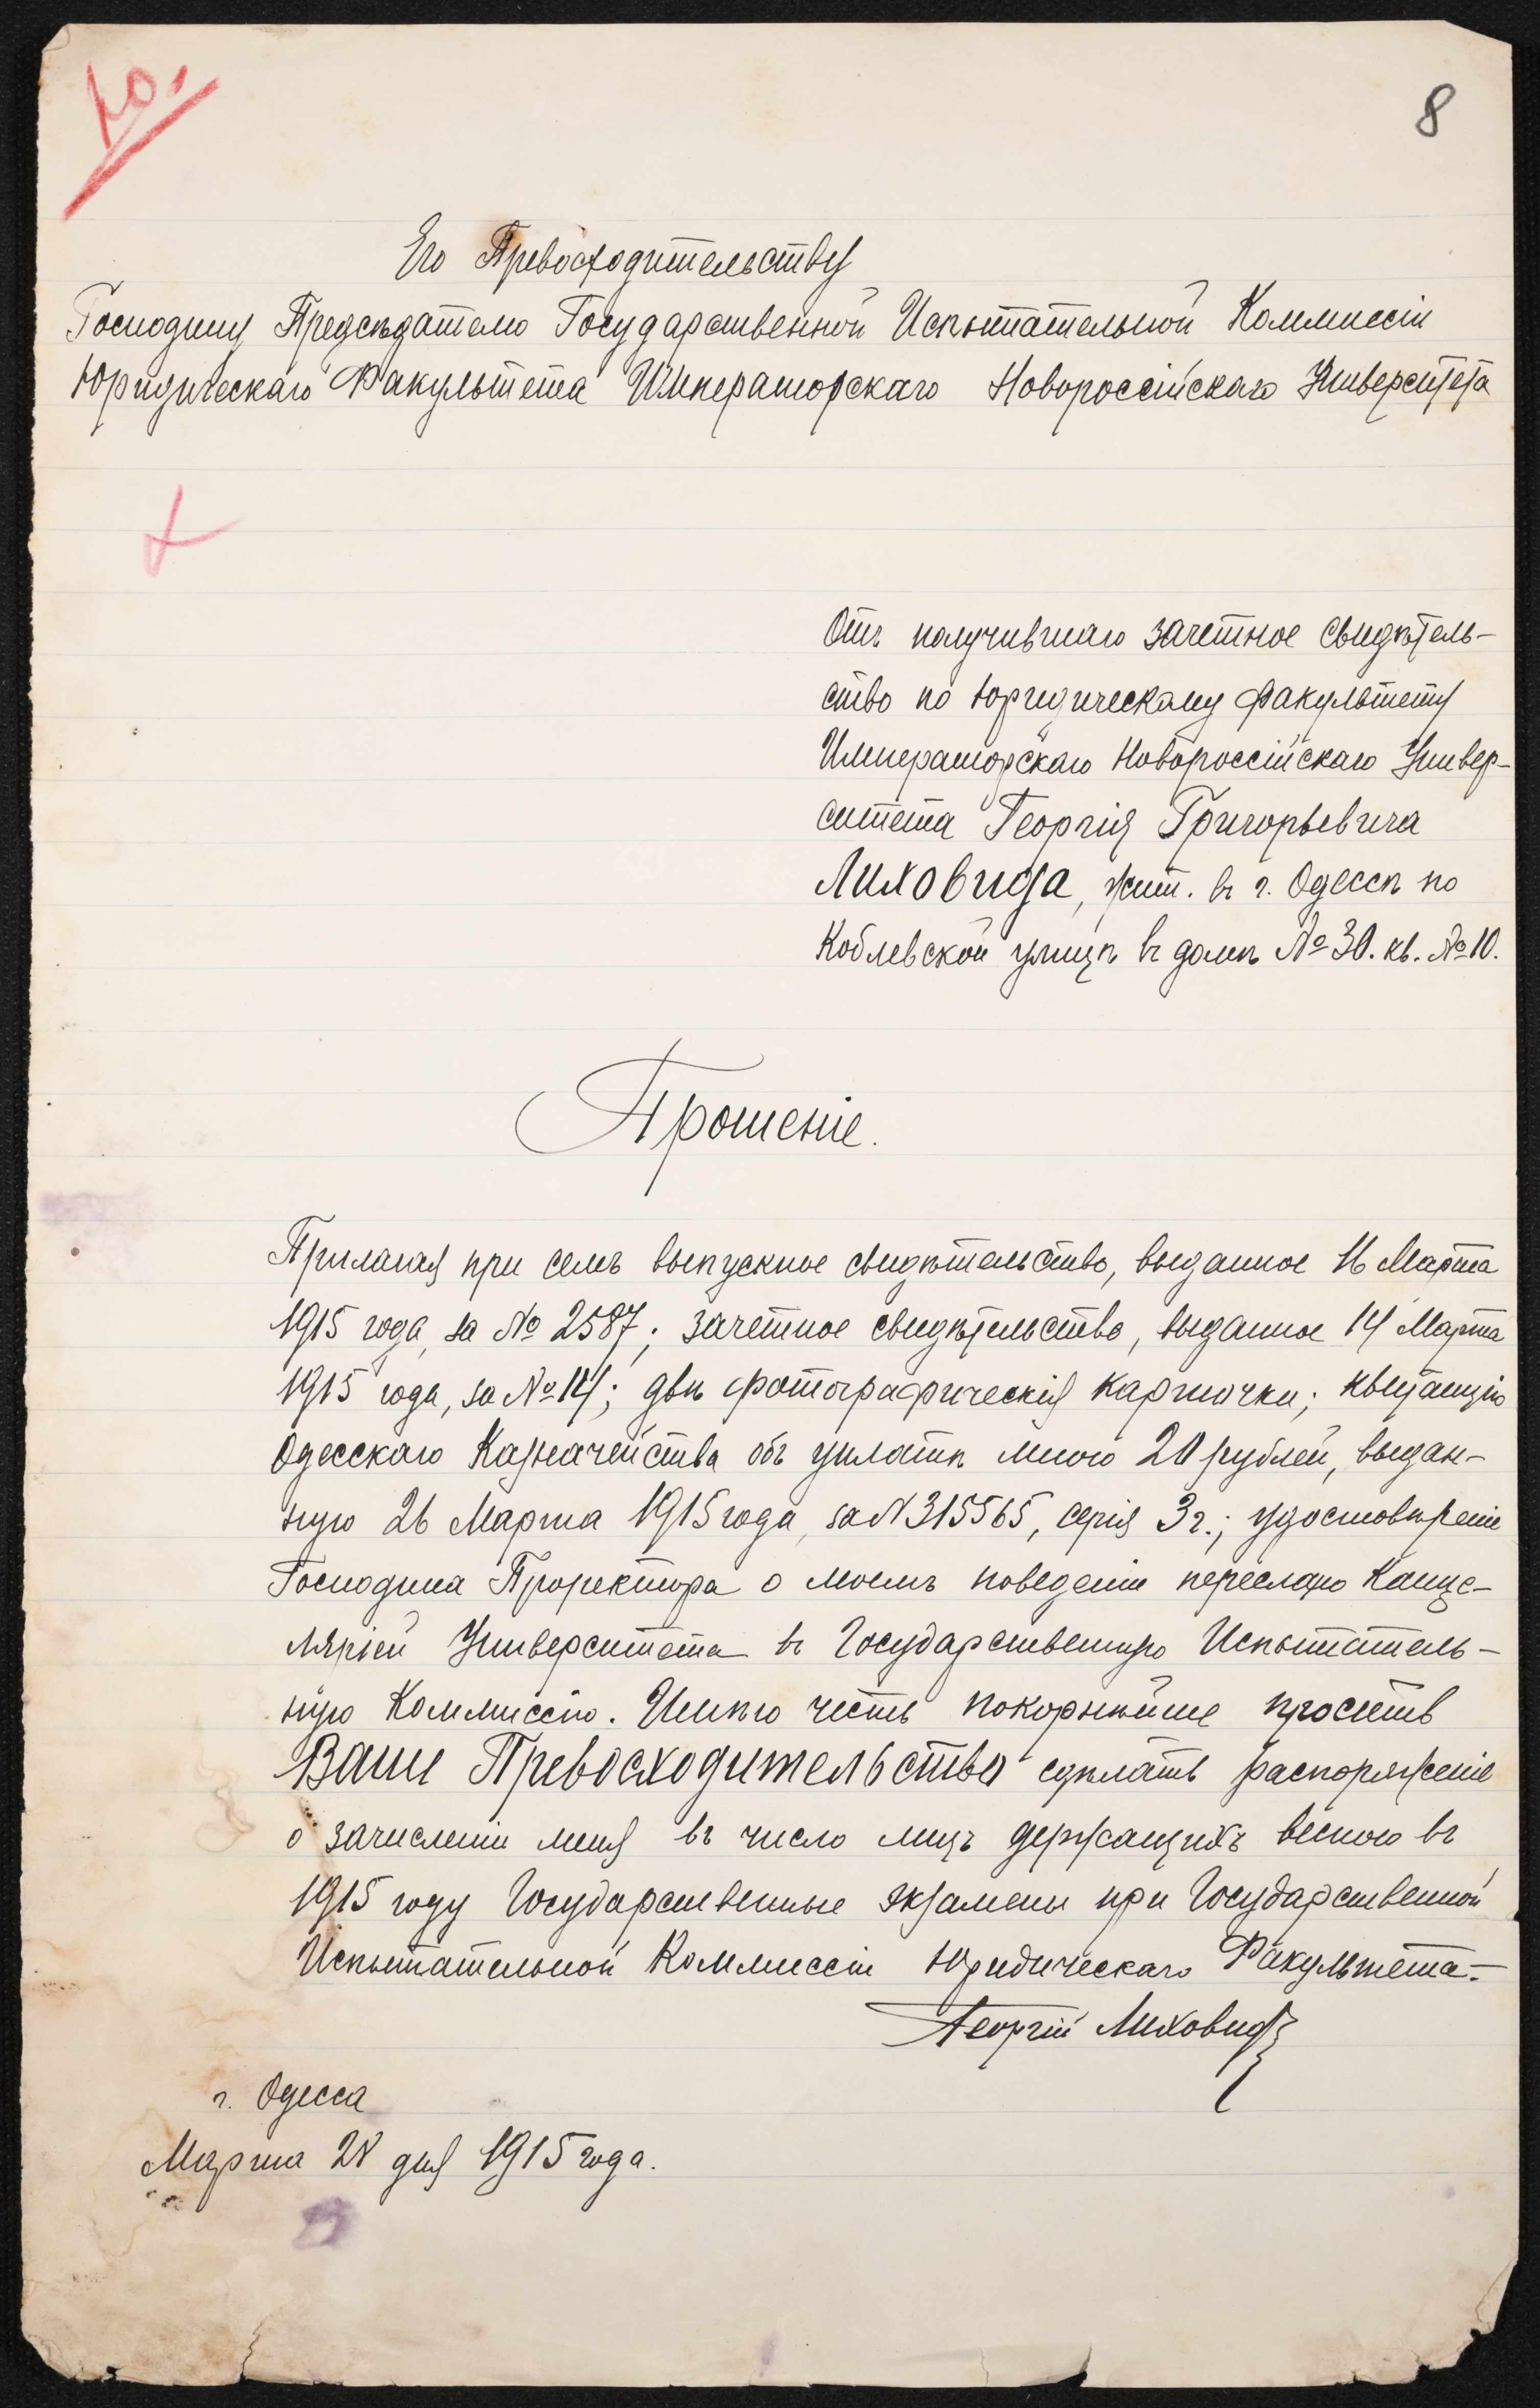 10.
8
Его Превосходительству
Господину Предсѣдателю Государственной Испытательной Коммиссіи
Юридическаго Факультета Императорскаго Новороссійскаго Университета
Отъ получившаго зачетное свидѣтель-
ство по Юридическому факультету
Императорскаго Новороссійскаго Универ-
ситета Георгія Григорьевича
Лиховида, жит. въ г. Одессѣ по
Коблевской улицѣ въ домѣ № 30. кв. № 10.
Прошеніе.
Прилагая при семъ выпускное свидѣтельство, выданное 16 Марта
1915 года, за № 2587; зачетное свидѣтельство, выданное 14 Марта
1915 года, за № 114; двѣ фотографическія карточки; квитанцію
Одесскаго Казначейства объ уплатѣ мною 20 рублей, выдан-
ную 26 Марта 1915 года, за N 315565, серія 3г.; удостовѣреніе
Господина Проректора о моемъ поведеніи переслано Канце-
ляріей Университета въ Государственную Испытатель-
ную Коммиссію. Имѣю честь покорнѣйше просить
Ваше Превосходительство сдѣлать распоряженіе
о зачисленіи меня въ число лицъ держащихъ весною въ
1915 году Государственные экзамены при Государственной
Испытательной Коммиссіи Юридическаго Факультета.—
Георгій Лиховидъ
г. Одесса
Марта 28 дня 1915 года.